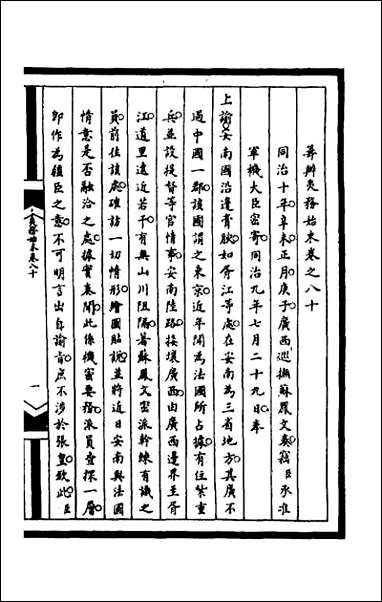 籌辦夷務始末卷之八十
同治十年辛未正月庚子廣西巡撫蘇鳳文奏竊臣承准
軍機大臣密寄同治九年七月二十九日奉
上諭安南國沿邊膏腴如胥江等處在安南為三省地方其廣不
過中國一郡該國謂之東京近年聞為法國所占據有住紮重
兵並設提督等官情事安南陸路接壤廣西由廣西邊界至胥
江道里遠近若干有無山川阻隔著蘇鳳文密派幹練有識之
員前往該處確訪一切情形繪圖貼說並將近日安南與法國
情意是否融洽之處據實奏聞此係機密要務派員查探一層
即作為該臣之意不可明言出自諭旨庶不涉於張皇欽此臣
夷務始末卷八十
一